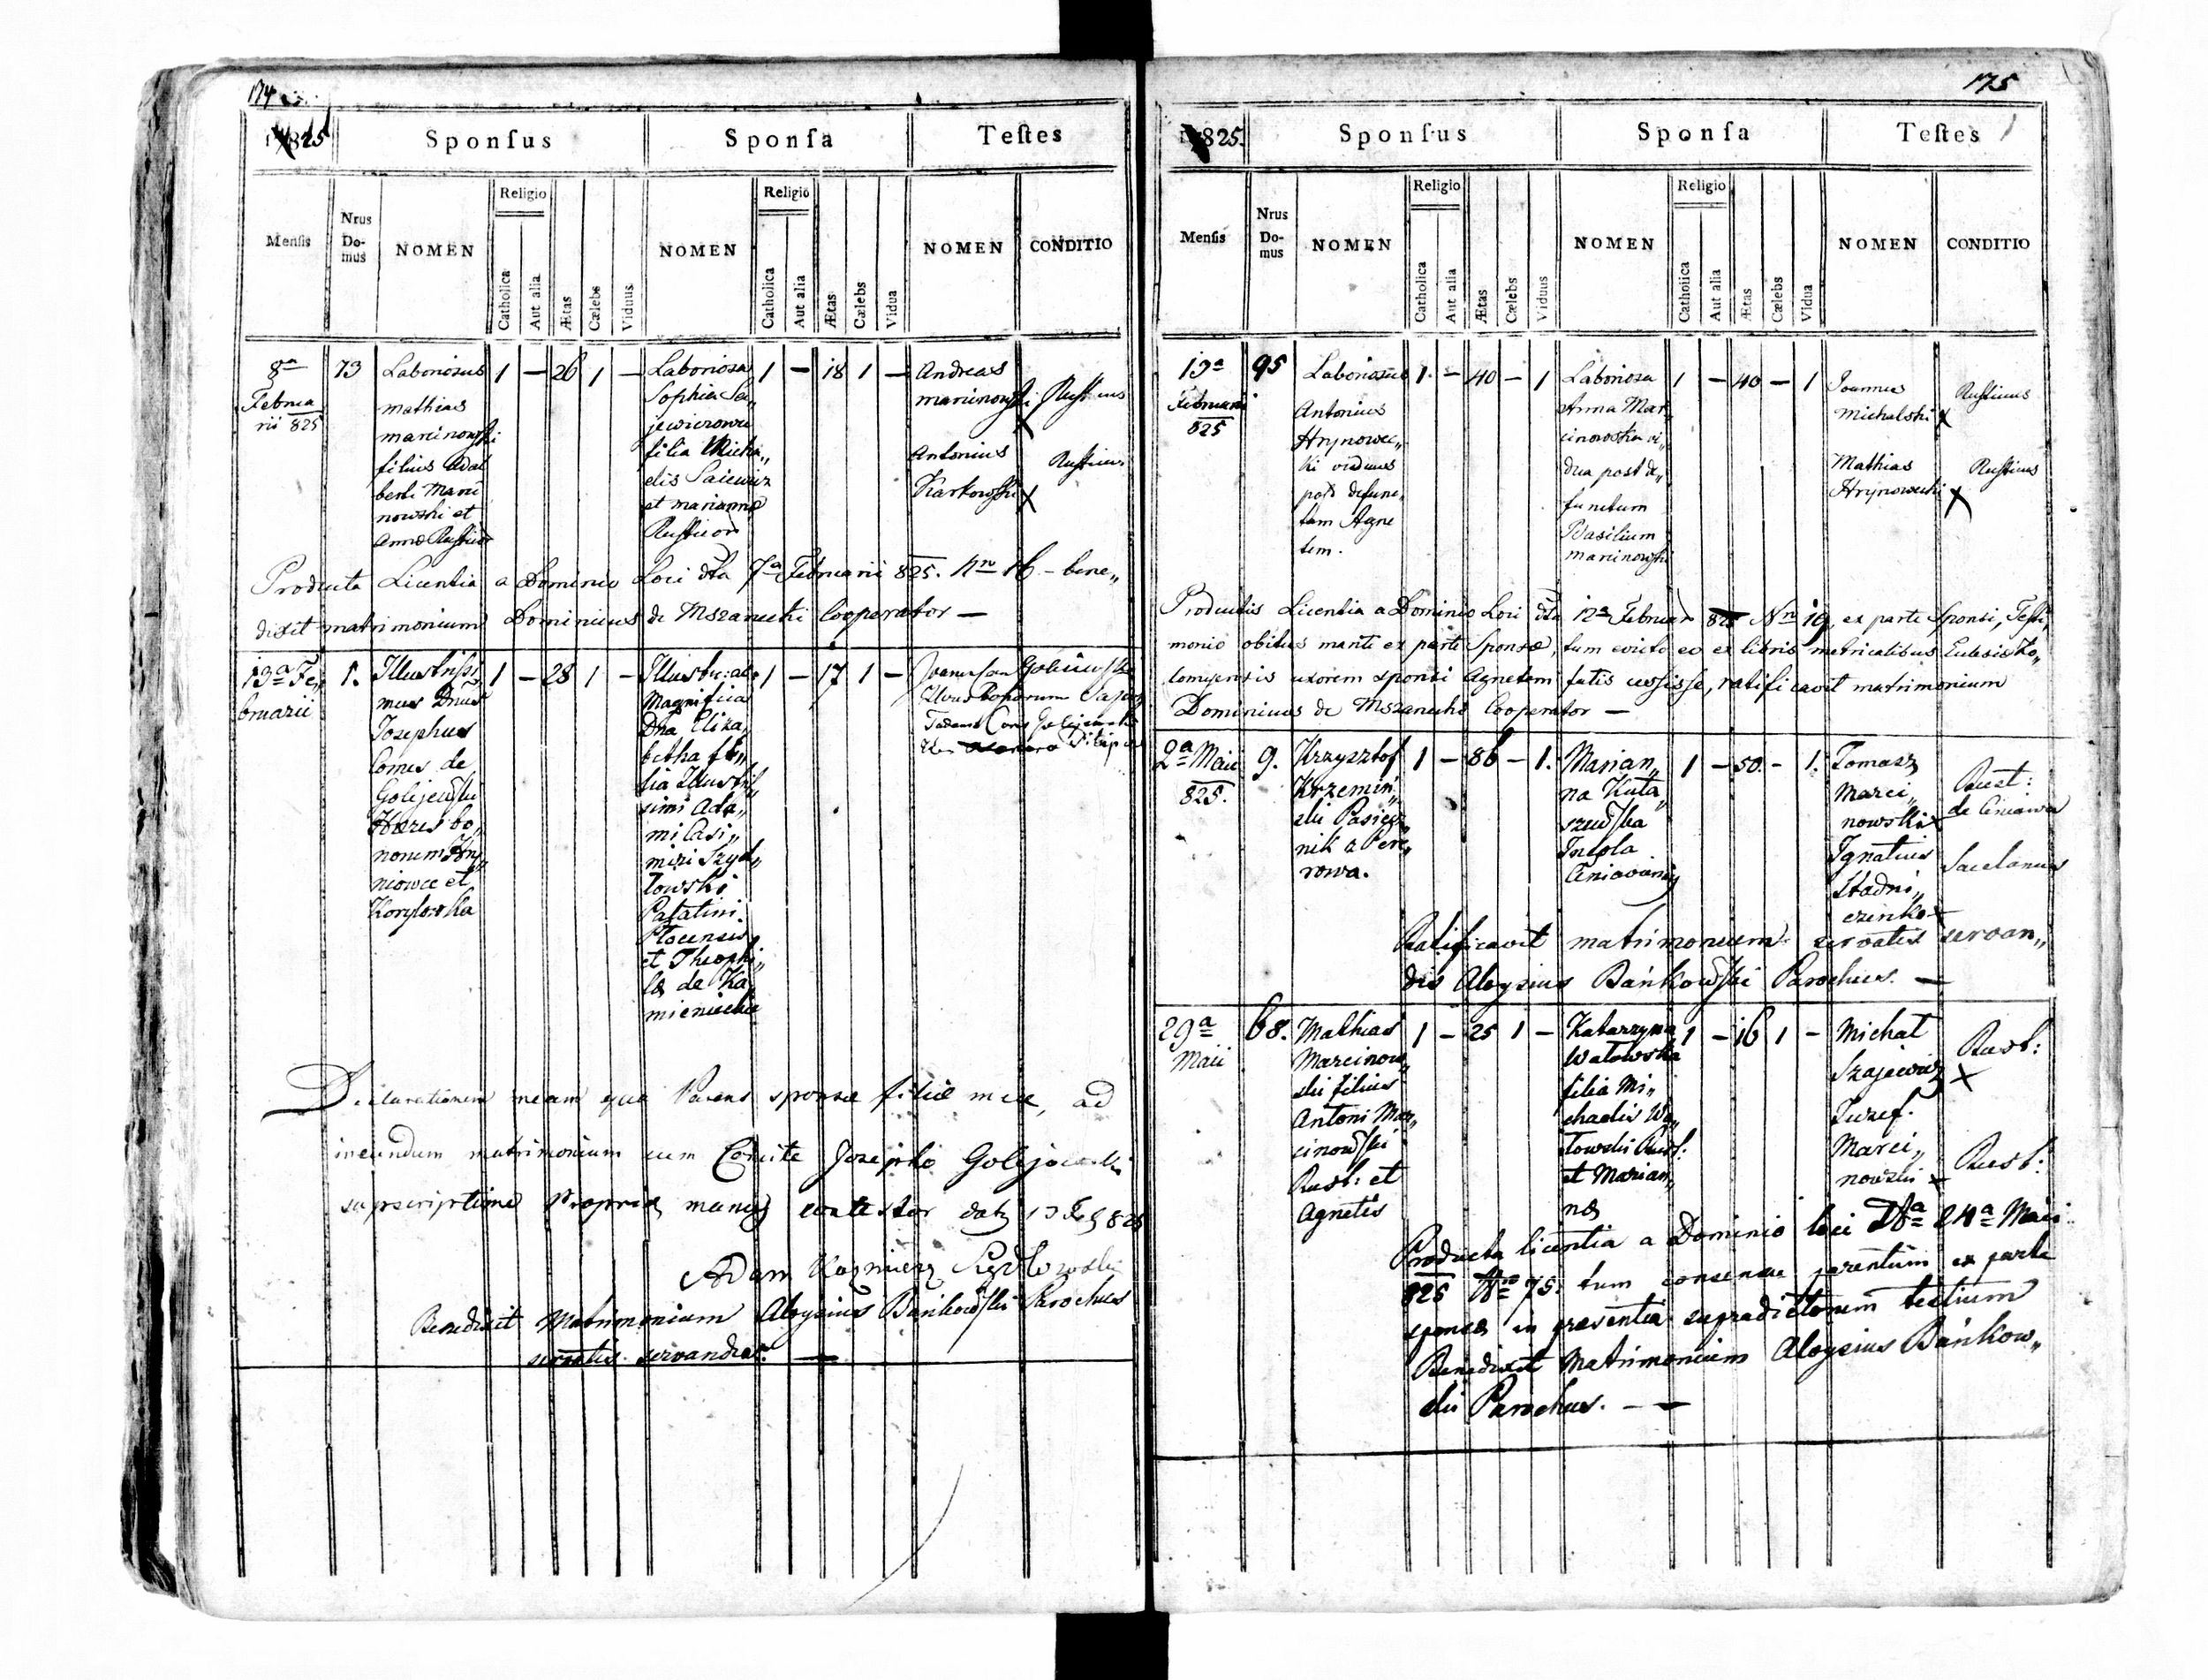 174
1825
Sponsus
Sponsa
Testes
Mensis
Nrus Do-mus
NOMEN
Religio
Catholica
Aut alia
Ætas
Cælebs
Viduus
NOMEN
Religio
Catholica
Aut alia
Ætas
Cælebs
Vidua
NOMEN
CONDITIO
8va
Februa
rii 825
73
Laboriosus
mathias
marcinowski
filius Adal
berti Marci
nowski et
Annæ Rusticor
1 — 26 1 —
Laboriosa
Sophia Sa„
jewiczowa
filia Micha„
elis Saiewicz
et marianna
Rusticor
1 — 18 1 —
Andreas
marcinowski
Rusticus
Antonius
Karkowski
Rusticus
Producta Licentia a Dominio Loci dta 7a Februarii 825. Nro 16 — bene„
dixit matrimonium Dominicus de Mszanecki Cooperator —
13a Fe„
bruarii
1.
Illustrissi
mus Dnus
Josephus
Comes de
Golejewski
Hæres bo„
norum
niowce et
Korylowka
1 — 28 1 —
Illustr: ac
Magnifica
Dna Eliza„
betha fi„
lia Illustris
simi Ada„
mi Casi„
miri Szyd„
łowski
Palatini
Plocensis
et Theophi„
læ de Ka„
mieniecka
1 — 17 1 —
Declarationem meam qua Parens sponsæ filiæ meæ, ad
ineundum matrimonium cum Comite Josepho Golejewski
supscriptione propria manus contestor
Adam Kazmierz Szydłowski
Benedixit Matrimonium Aloysius Bańkowski Parochus
servatis servandis. —
175
1825.
Sponsus
Sponsa
Testes
Mensis
Nrus Do-mus
NOMEN
Religio
Catholica
Aut alia
Ætas
Cælebs
Viduus
NOMEN
Religio
Catholica
Aut alia
Ætas
Cælebs
Vidua
NOMEN
CONDITIO
13a
Februarii
825
95
Laboriosus
Antonius
Hrynowec„
ki viduus
post defunc„
tam Agne
tem.
1 — 40 — 1
Laboriosa
Anna Mar„
cinowska vi„
dua post de„
functum
Basilium
marcinowski
1 — 40 — 1
Joannes
Michalski
Rusticus
Mathias
Hrynowecki
Rusticus
Productis Licentia a Dominio Loci dta 12a Februar 825 Nro 19, ex parte Sponsi, Testi„
monio obitus mariti ex parte Sponsæ, tum evicto eo ex libris metricalibus Eclesiæ Ko„
lomyensis uxorem sponsi Agnetem fatis cessisse, ratificavit matrimonium
Dominicus de Mszanecki Cooperator —
2a Maii
825.
9.
Krzysztof
Krzemiń„
ski Pasiecz„
nik z Pere„
rowa.
1 — 86 — 1.
Marian„
na Kuta„
szewska
Incola
1 — 50. — 1.
Tomasz
Marci„
nowski
Rust:
de Ceniawa
Ignatius
Stadni„
czenko
Sacelanus
Ratificavit matrimonium servatis servan„
dis Aloysius Bańkowski Parochus. —
29a
Maii
68.
Mathias
Marcinow„
ski filius
Antoni Mar„
cinowski
Rust: et
Agnetis
1 — 25 1 —
Katarzyna
Watowska
filia Mi„
chaelis Wa„
towski Rust:
et Marian„
næ
1 — 16 1 —
Michał
Szajewicz
Rust:
Juzef.
Marci„
nowski
Rust:
Producta licentia a Dominio loci Dta 24a Maii
825 Nro 75. tum consensu parentum ex parte
sponsæ in præsentia supradictorum testium
Benedixit Matrimonium Aloysius Bańkow„
ski Parochus. — —